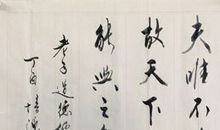 夫唯不
故天下
能與之
老子道德
丁酉